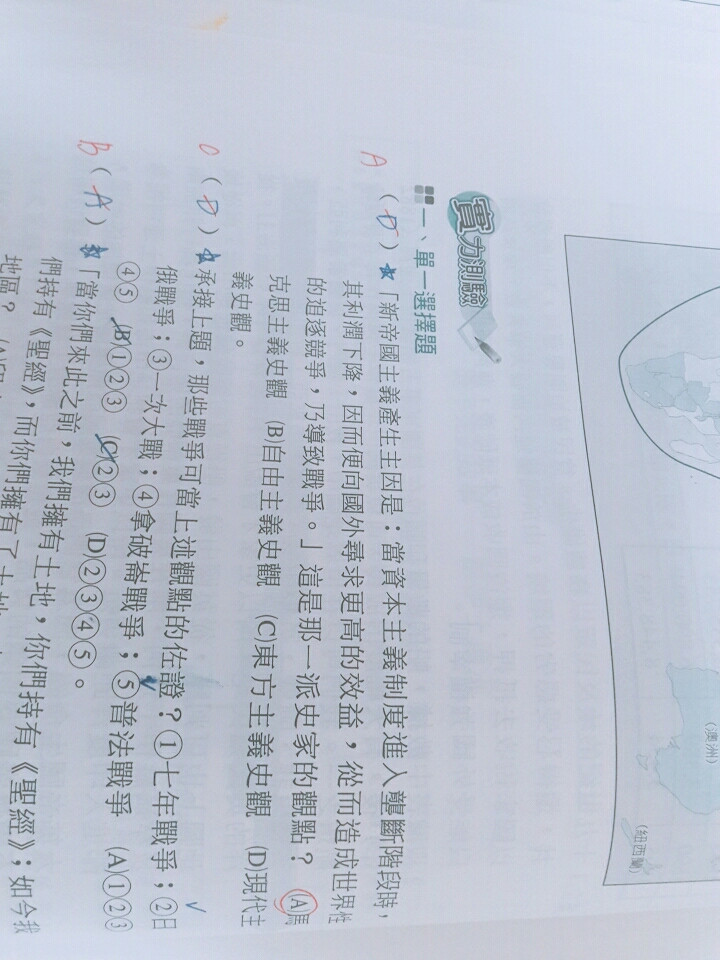 (澳洲)
(紐西蘭)
實力測驗
一、單一選擇題
A (D) 「新帝國主義產生主因是：當資本主義制度進入壟斷階段時，
其利潤下降，因而便向國外尋求更高的效益，從而造成世界性
的追逐競爭，乃導致戰爭。」這是那一派史家的觀點？ (A)馬
克思主義史觀 (B)自由主義史觀 (C)東方主義史觀 (D)現代主
義史觀。
(D) 承接上題，那些戰爭可當上述觀點的佐證？①七年戰爭；②日
俄戰爭；③一次大戰；④拿破崙戰爭；⑤普法戰爭 (A)①②③
④⑤ (B)①②③ (C)②③ (D)②③④⑤。
B (A) 「當你們來此之前，我們擁有土地，你們持有《聖經》；如今我
們持有《聖經》，而你們擁有了土地
地區？